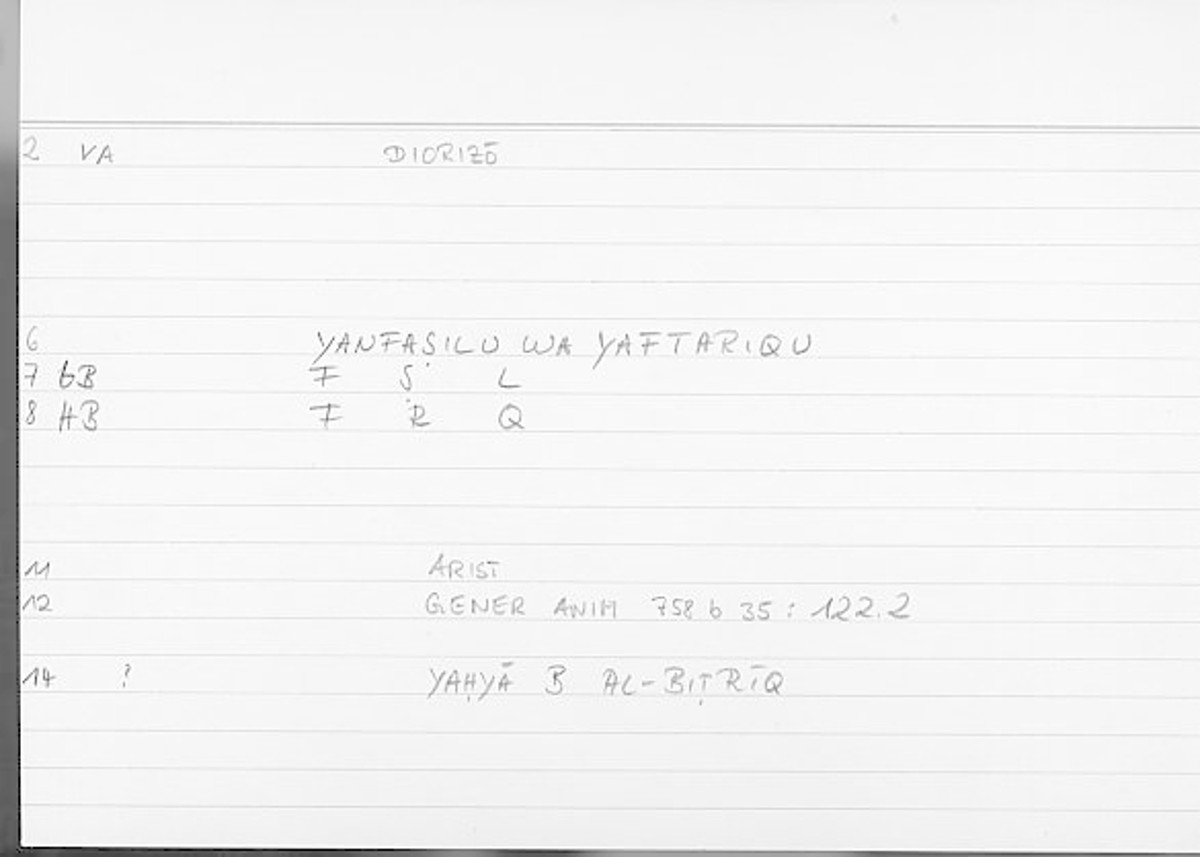 2 VA DIORIZŌ
6 YANFAṢILU WA YAFTARIQU
7 bB F Ṣ L
8 HB F R Q
11 ARIST
12 GENER ANIM 758 b 35 : 122.2
14 ? YAḤYĀ B AL-BIṬRĪQ